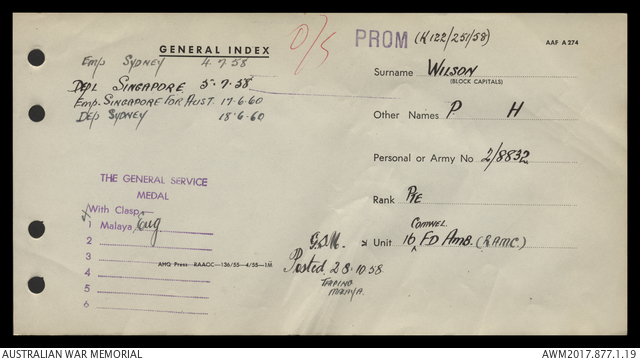 GENERAL INDEX
O/S
PROM (K122/251/58)
AAF A274
Emp SYDNEY 4.7.58
Depl SINGAPORE 5.7.58
Emp. SINGAPORE FOR AUST. 17.6.60
Dep SYDNEY 18.6.60
Surname WILSON
(BLOCK CAPITALS)
Other Names P. H
Personal or Army No 2/8832
Rank PTE
COMWEL.
Unit 16 FD AMB. (RAMC)
THE GENERAL SERVICE
MEDAL
With Clasp
1 Malaya
2
3
4
5
6
AHQ Press—RAAOC—136/55—4/55—1M
G.S.M.
Posted 28.10.58
TAIPING
MALAYA.
AUSTRALIAN WAR MEMORIAL
AWM2017.877.1.19